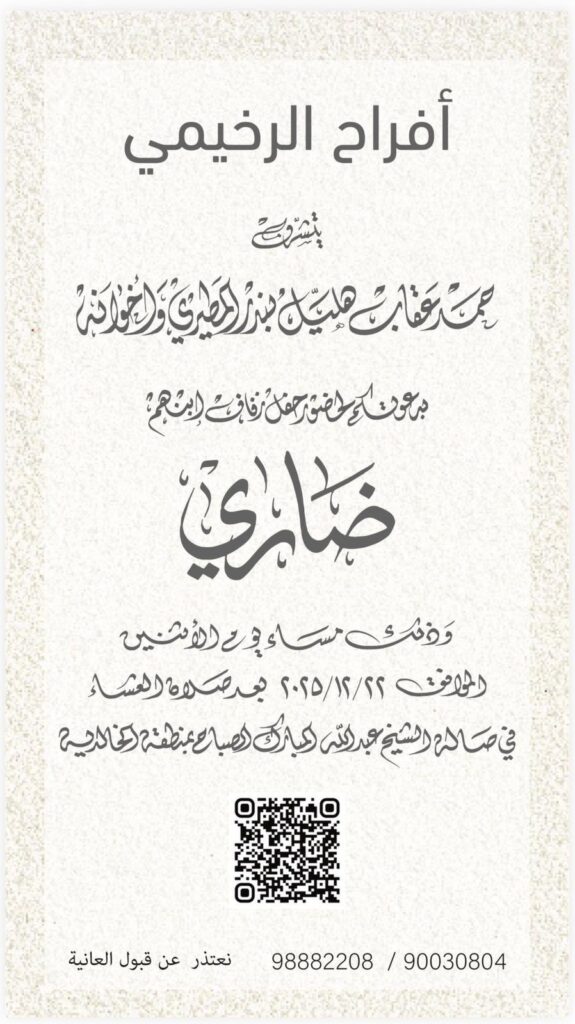 أفراح الرخيمي
يتشرف
حمد عقاب هليّل بندر المطيري وأخوانه
بدعوتكم لحضور حفل زفاف إبنهم
ضاري
وذلك مساء يوم الأثنين
الموافق ٢٠٢٥/١٢/٢٢ بعد صلاة العشاء
في صالة الشيخ عبدالله المبارك الصباح بمنطقة الخالدية
نعتذر عن قبول العانية 98882208 / 90030804